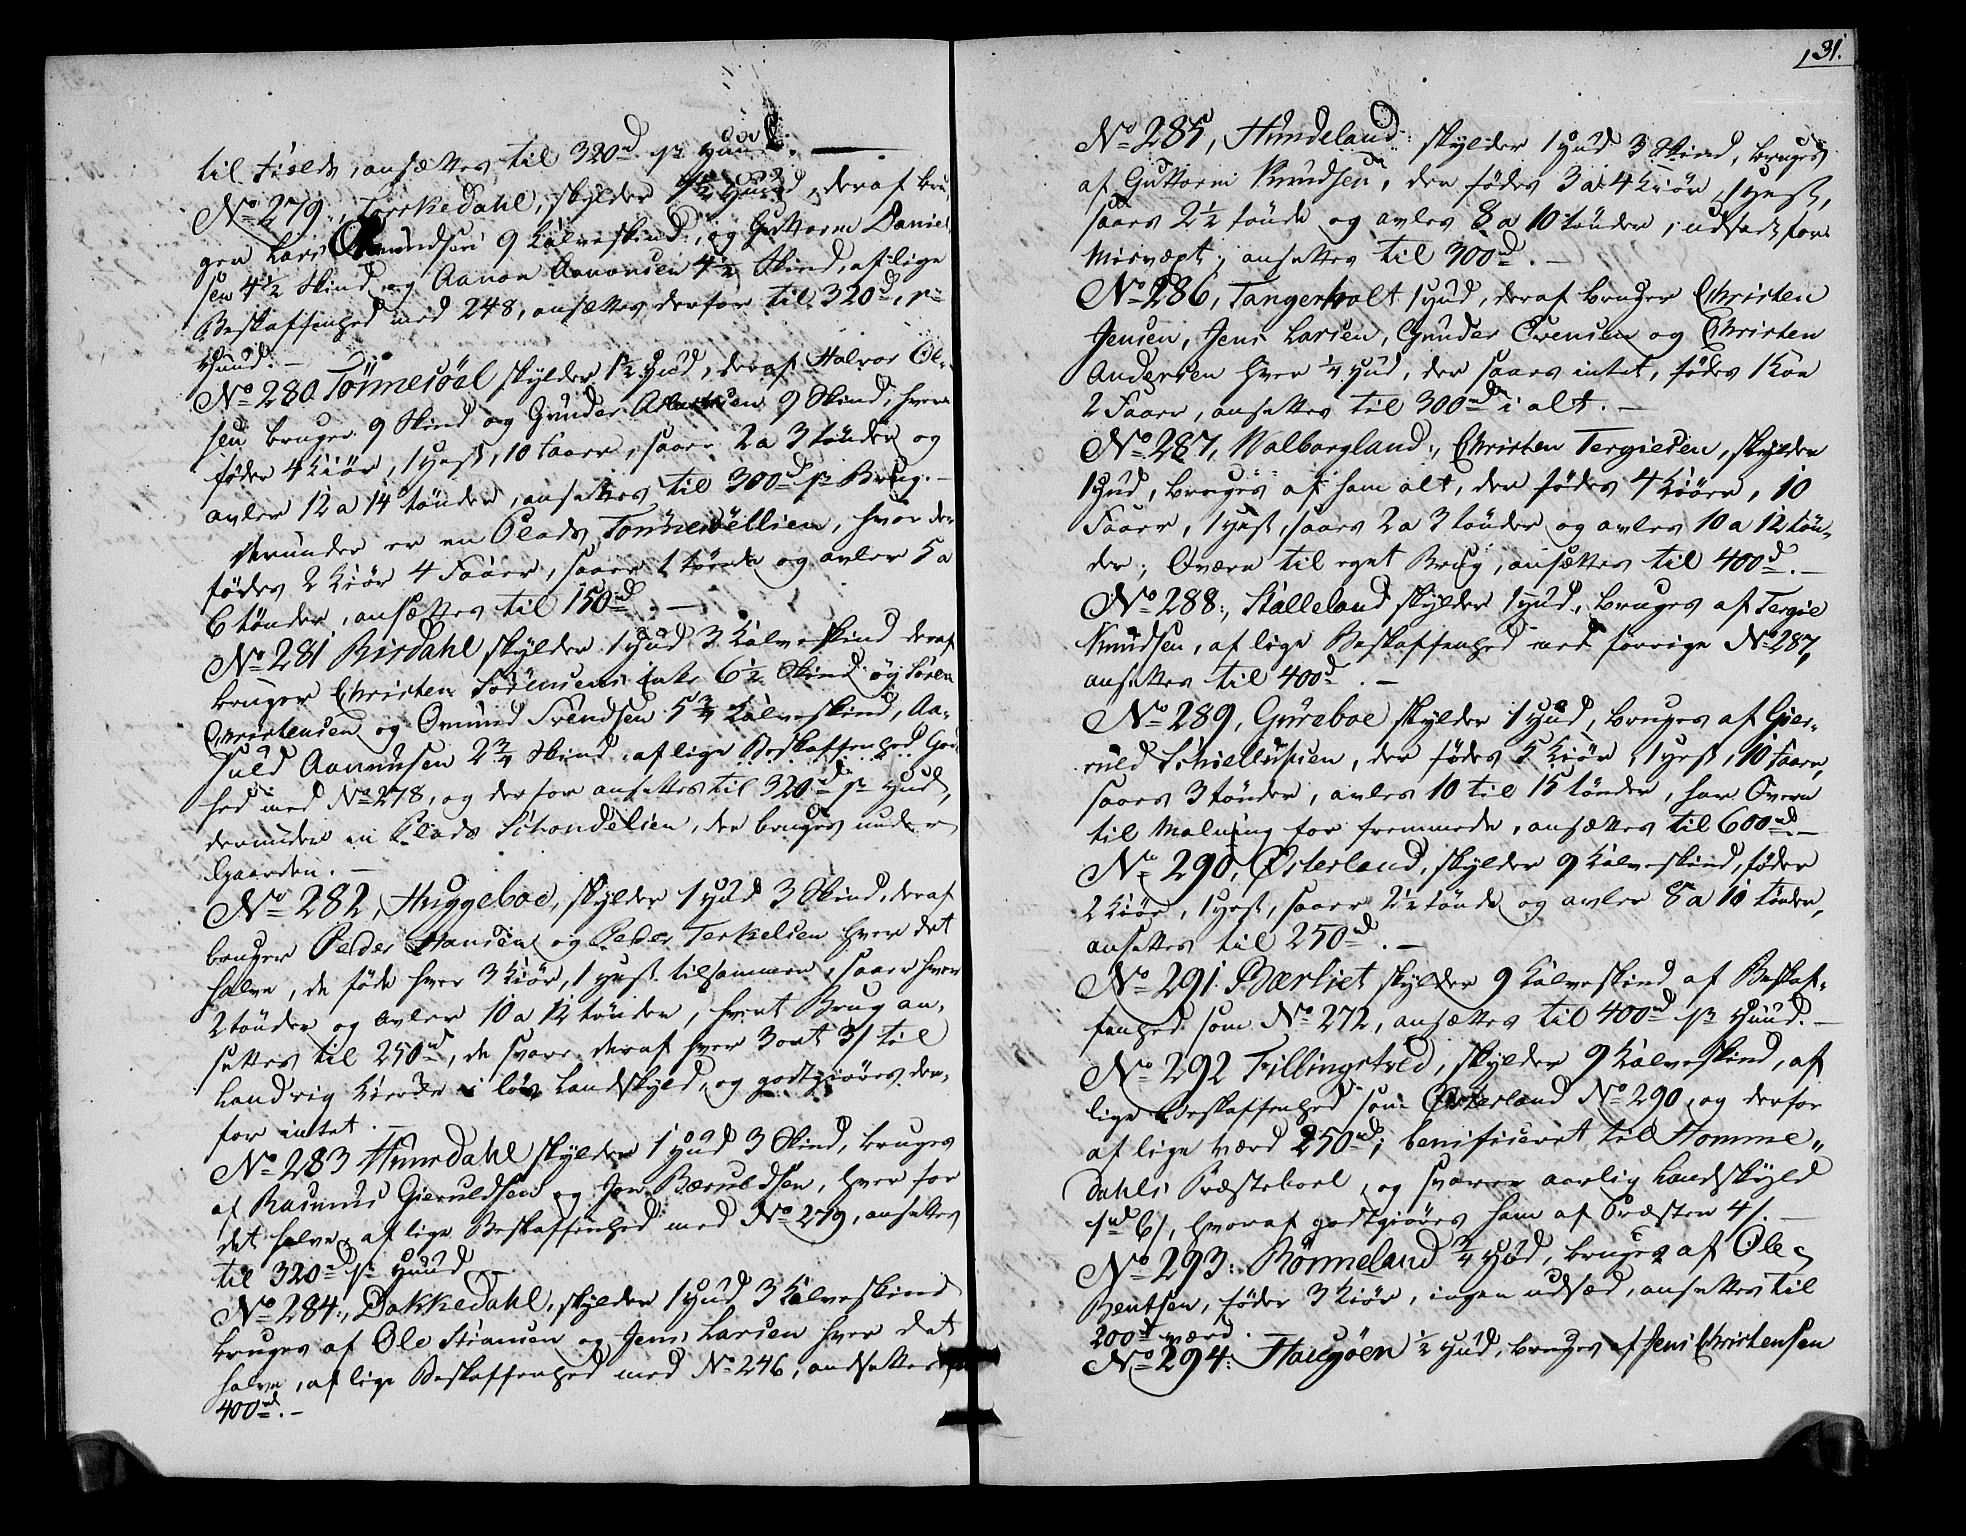 til Fields, ansættes til 320rd pr Huud.
No 279., Torskedahl, skylder 1½ Hud, deraf bru-
ger Lars Omundsen 9 Kalveskind, og Guttorm Daniel
sen 4½ Skind og Aanon Aanonsen 4½ Skind, af lige
Beskaffenhed med 248, ansættes derfor til 320rd pr
Huud. –
No 280. Tönnesöal skylder 1½ Hud, deraf Halvor Ol-
sen bruger 9 Skind og Gunder 9 Skind, hver
föder 4 Kiör, 1 Hest, 10 Faar, saar 2 a 3 tönder og
avler 12 a 14 tönder, ansættes til 300rd pr Brug. –
Herunder er en Plads Tönnesöellien, hvor der
födes 2 Kiör 4 Faaer, saaes 1 tönde og avler 5 a
6 tönder, ansættes til 150rd. –
No 281 Birdahl skylder 1 Hud 3 Kalveskind deraf
bruger Christen Sörensens Enke 6½ Skind og Sören
Christensen og Omund Trendsen 5¾ Kalveskind, Aa-
suld Aanunsen 2¾ Skind, af lige Beskaffenhed God-
hed med No 278, og derfor ansættes til 320rd pr Hud,
derunder en Plads Schondelien, der bruges under
Gaarden. –
No 282, Huggeboe, skylder 1 Hud 3 Skind, deraf
bruger Peder Hansen og Peder Terkelsen hver det
halve, de föde hver 3 Kiör, 1 Hest tilsammen, saar hver
2 tönder og avler 10 a 12 tönder, hvert Brug an-
settes til 250rd, de svare deraf hver 3 ort 3 s til
Landvig Kierke i lös Landskyld, og godtgiöres der-
for intet. –
No 283 Hunsdahl skylder 1 Hud 3 Skind, bruges
af Rasmus Gieruldsen og Jon Bæruldsen, hver for
det halve, af lige Beskaffenhed med No 279, ansættes
til 320rd pr Huud –
No 284., Dakkedahl, skylder 1 Hud 3 Kalveskind
bruges af Ole Stiansen og Jens Larsen hver det
halve, af lige Beskaffenhed med No 246, andsettes
400rd. –
131.
No 285, Hundeland skylder 1 Hud 3 Skind, bruges
af Guttorm Knudsen, der födes 3 a 4 Kiör, 1 Hest,
saaes 2½ tönde og avles 8 a 10 tönder, udsadt for
Misvæxt; ansettes til 300rd. –
No 286, Tangerholt 1 Hud, deraf bruger Christen
Jensen, Jens Larsen, Gunder Evensen og Christen
Andersen hver ¼ Hud, der saaes intet, födes 1 Koe
2 Faaer, ansettes til 300rd i alt. –
No 287, Valborgland., Christen Tergiesen, skylder
1 Hud, bruges af ham alt, der födes 4 Kiöer, 10
Faaer, 1 Hest, saaes 2 a 3 tönder og avles 10 a 12 tön-
der; Qværn til eget Brug, ansættes til 400rd. –
No 288., Stalleland skylder 1 Hud, bruges af Tergie
Knudsen, af lige Beskaffenhed med forrige No 287,
ansettes til 400rd. –
No 289, Gureboe skylder 1 Hud, bruges af Gier-
uld Schiellusien, der födes 5 Kiör, 1 Hest, 10 Faar,
saaes 3 tönder, avles 10 til 15 tönder, har Qværn
til Malning for fremmede, ansættes til 600rd –
No 290, Østerland, skylder 9 Kalveskind, föder
2 Kiör, 1 Hest, saaer 2½ tönde og avler 8 a 10 tönder,
ansettes til 250rd. –
No 291. Bærliet skylder 9 Kalveskind af Beskaf-
fenhed som No 272, ansættes til 400rd pr Huud. –
No 292 Trillingstved, skylder 9 Kalveskind, af
lige Beskaffenhed som Østerland No 290, og derfor
af lige værd 250rd; beneficeret til Homme-
dahls Præstebord, og svarer aarlig Landskyld
1rd 6 s, hvoraf godtgiöres ham af Præsten 4 s. –
No 293. Rönneland ¾ Hud, bruges af Ole
Bentsen, föder 3 Kiör, ingen udsæd, ansettes til
200rd værd.
No 294. Haugöen ½ Hud, bruges af Jens Christensen